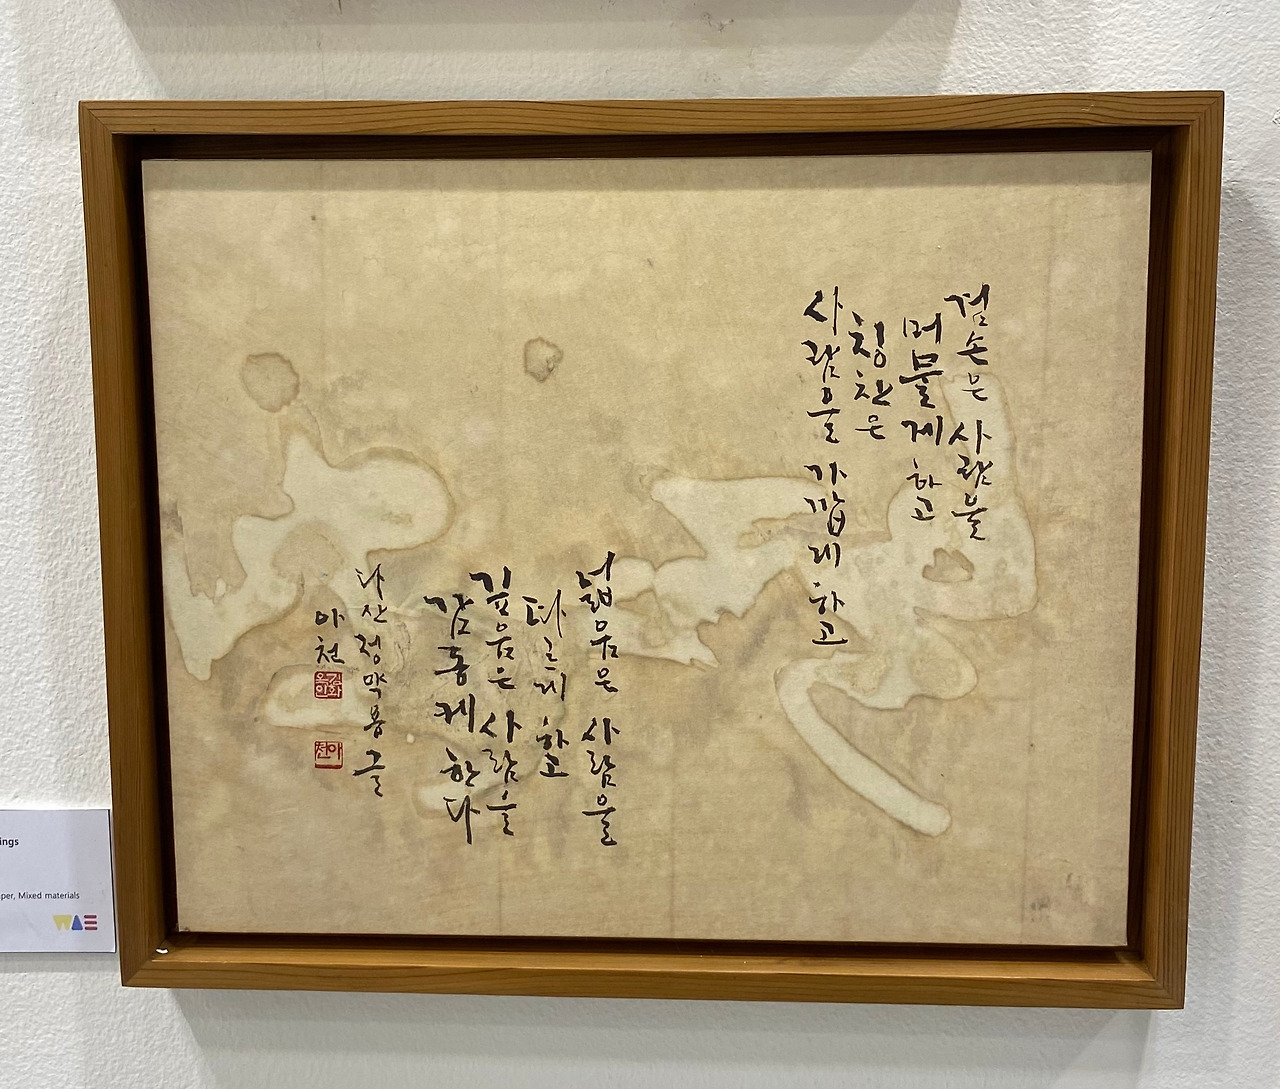 겸손은 사람을
머물게 하고
칭찬은
사람을 가깝게 하고
넓음은 사람을
따르게 하고
깊음은 사람을
감동케 한다
다산 정약용 글
아천
김화옥인
아천
ings
per, Mixed materials
WAE